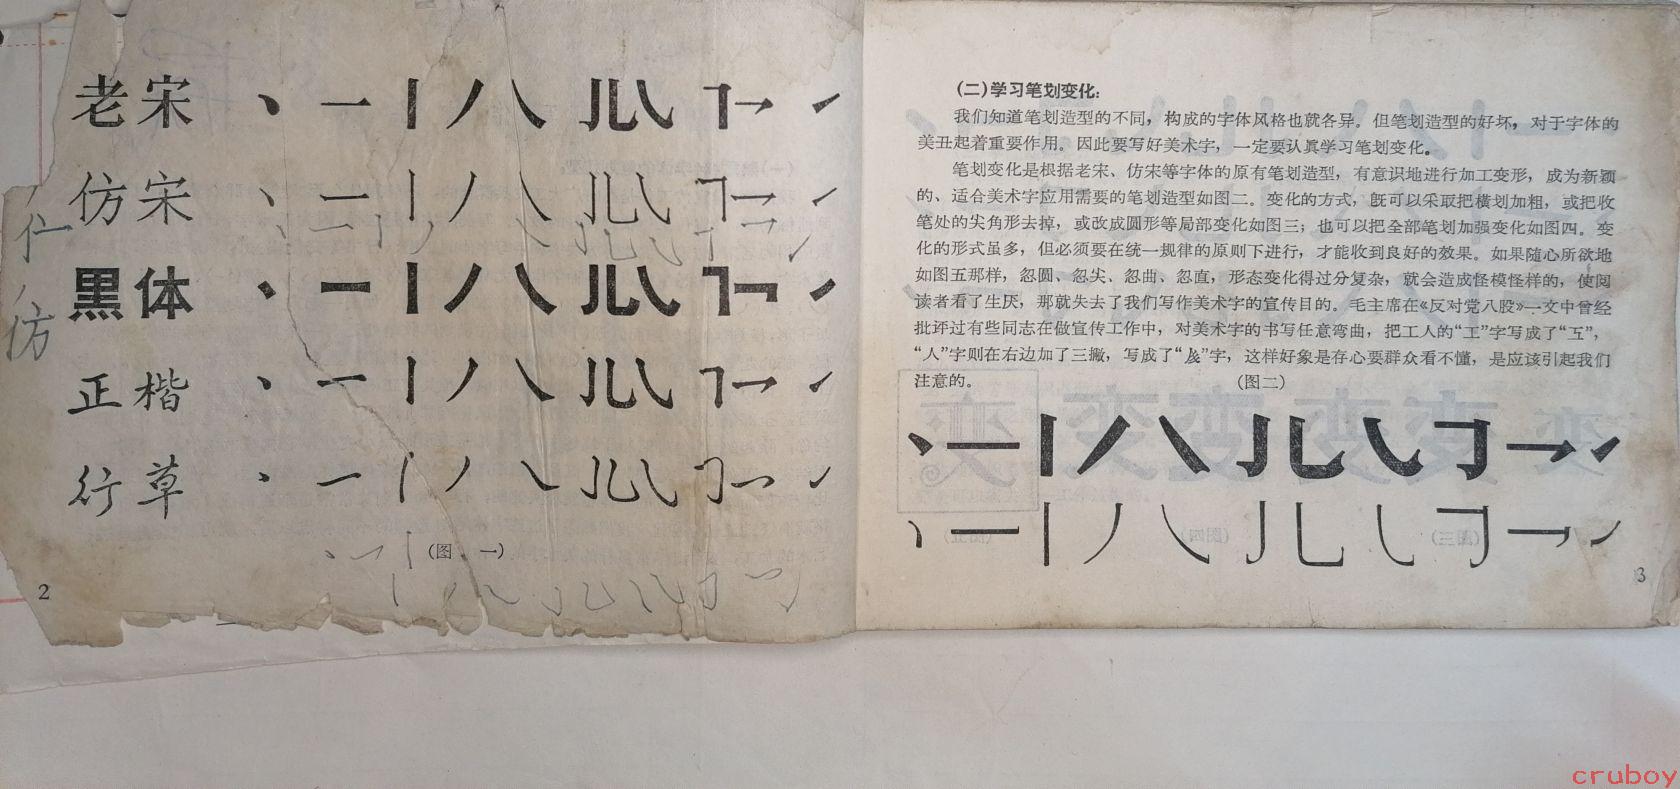 老宋
仿宋
黑体
正楷
行草
仁
仿
(图 一)
2
(二)学习笔划变化:
我们知道笔划造型的不同，构成的字体风格也就各异。但笔划造型的好坏，对于字体的
美丑起着重要作用。因此要写好美术字，一定要认真学习笔划变化。
笔划变化是根据老宋、仿宋等字体的原有笔划造型，有意识地进行加工变形，成为新颖
的、适合美术字应用需要的笔划造型如图二。变化的方式，既可以采取把横划加粗，或把收
笔处的尖角形去掉，或改成圆形等局部变化如图三；也可以把全部笔划加强变化如图四。变
化的形式虽多，但必须要在统一规律的原则下进行，才能收到良好的效果。如果随心所欲地
如图五那样，忽圆、忽尖、忽曲、忽直，形态变化得过分复杂，就会造成怪模怪样的，使阅
读者看了生厌，那就失去了我们写作美术字的宣传目的。毛主席在《反对党八股》一文中曾经
批评过有些同志在做宣传工作中，对美术字的书写任意弯曲，把工人的“工”字写成了“互”，
“人”字则在右边加了三撇，写成了“”字，这样好象是存心要群众看不懂，是应该引起我们
注意的。
(图二)
3
cruboy